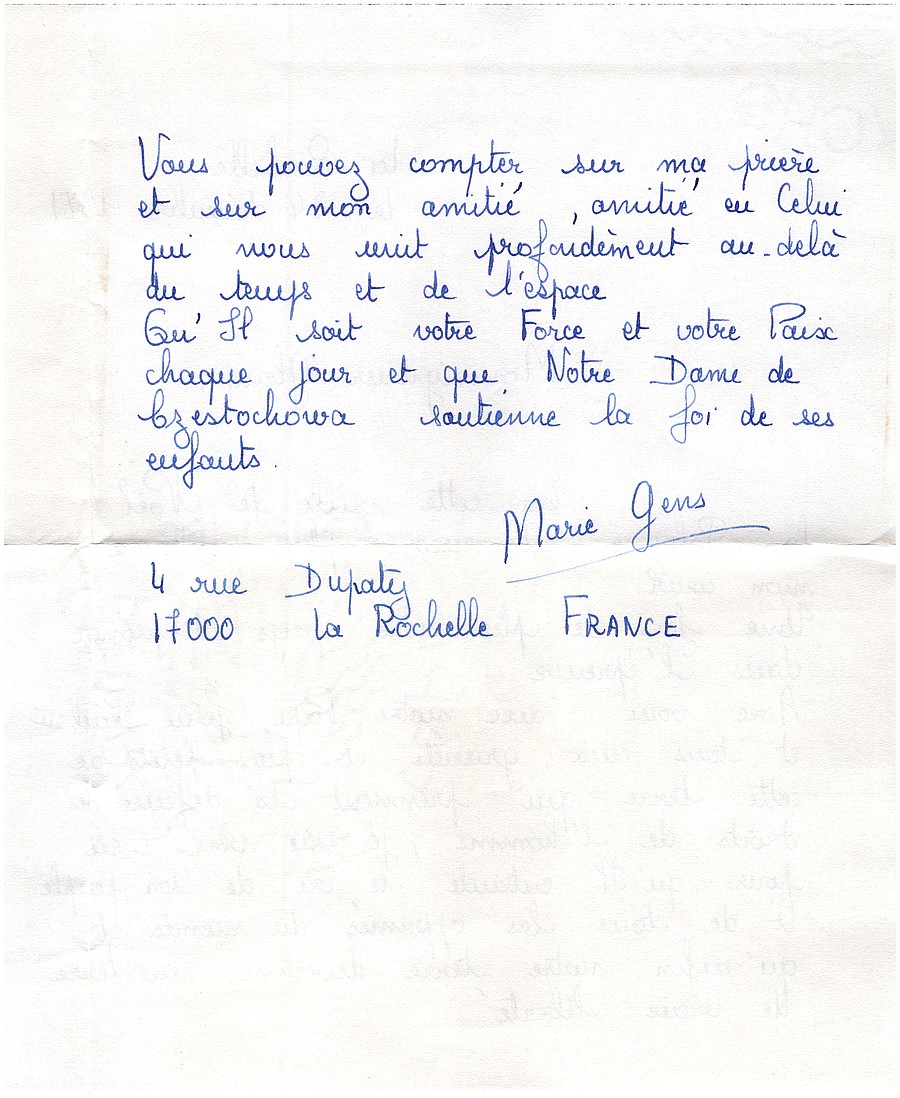 Vous pouvez compter sur ma prière
et sur mon amitié, amitié en Celui
qui nous unit profondèment au-delà
du temps et de l'espace
Qu'Il soit votre Force et votre Paix
chaque jour et que Notre Dame de
Czestochowa soutienne la foi de ses
enfants.
Marie Gens
4 rue Dupaty
17000 La Rochelle FRANCE